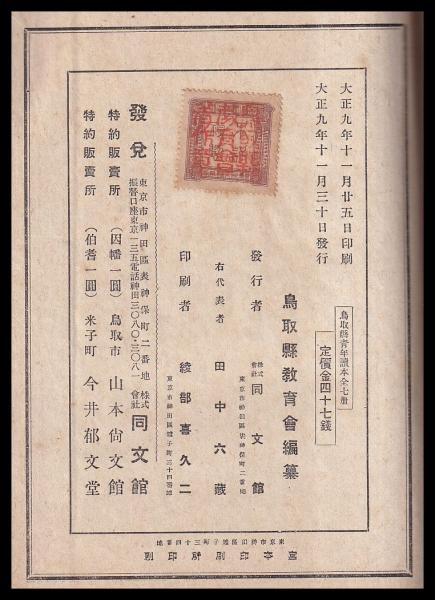 大正九年十一月廿五日印刷
大正九年十一月三十日發行
鳥取縣青年讀本全七册
定價金四十七錢
鳥取縣教育會編纂
發行者 株式會社 同文館
東京市神田區表神保町二番地
右代表者 田中六藏
印刷者 綾部喜久二
東京市神田區鎌子町三十四番地
發兌 東京市神田區表神保町二番地 株式會社 同文館
振替口座東京一三五電話神田三〇八〇・三〇八一
特約販賣所（因幡一圓）鳥取市 山本尙文館
特約販賣所（伯耆一圓）米子町 今井郁文堂